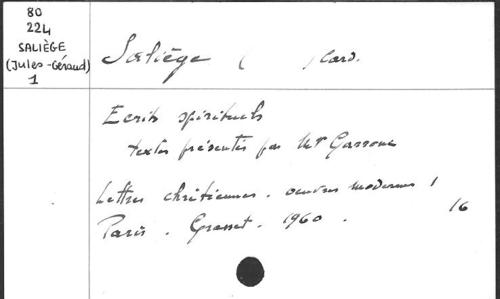 80
224
SALIÈGE
(Jules-Géraud)
1
Saliège ( ) Card.
Ecrits spirituels
textes présentés par Mgr Garrone
Lettres chrétiennes. oeuvres modernes 1
Paris. Grasset. 1960.
16